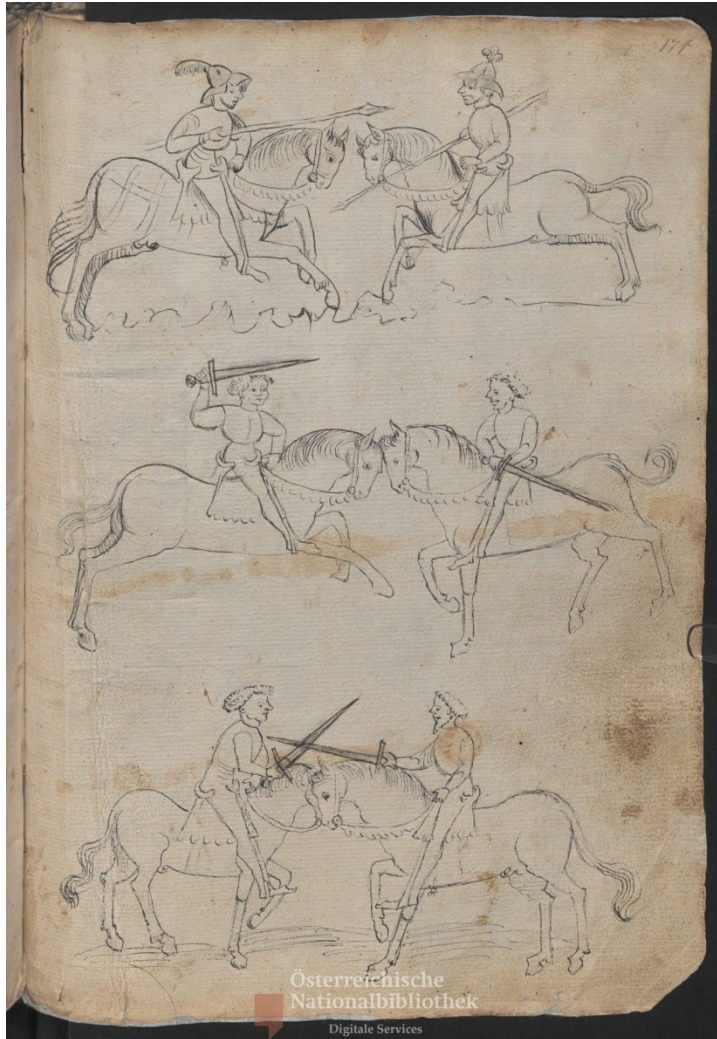 174
Österreichische
Nationalbibliothek
Digitale Services